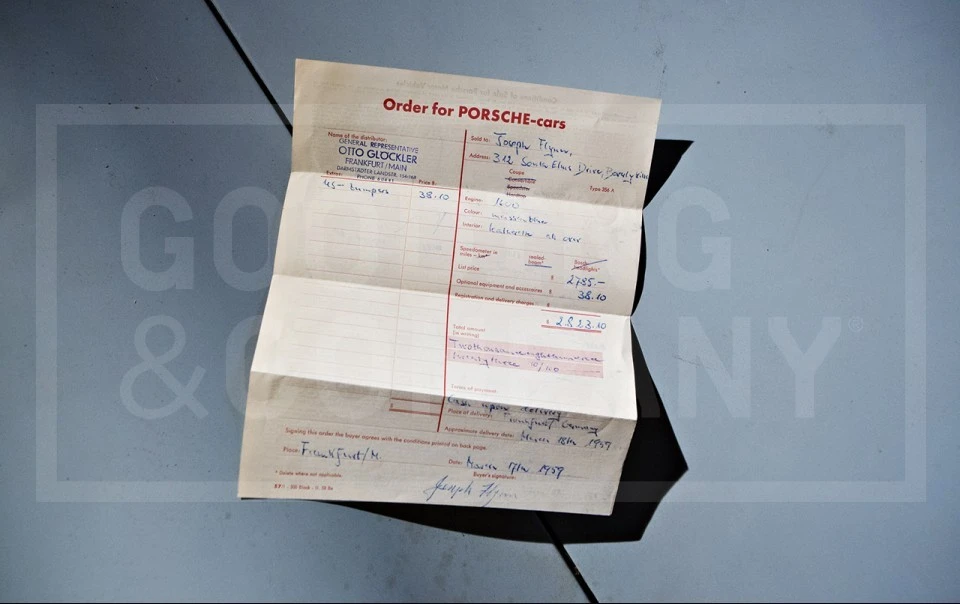 Order for PORSCHE-cars
Name of the distributor:
GENERAL REPRESENTATIVE
OTTO GLÖCKLER
FRANKFURT/MAIN
DARMSTÄDTER LANDSTR.
PHONE
Extras: Price $:
US- bumpers 38.10
Sold to: Joseph Flynn,
Address: 312 Drive, Beverly
Coupe
Type 356 A
Engine: 1600
Colour:
Interior:
Speedometer in miles
sealed beam*
headlights*
List price $ 2785.-
Optional equipment and accessories $ 38.10
Registration and delivery charges
$ 2823.10
Total amount
(in writing)
Terms of payment:
Cash upon delivery
Place of delivery: Frankfurt/Germany
Approximate delivery date: March 18th 1959
Signing this order the buyer agrees with the conditions printed on back page.
Place: Frankfurt/M. Date: March 17th 1959
Buyer's signature:
* Delete where not applicable
Joseph Flynn
GOODING
& COMPANY®